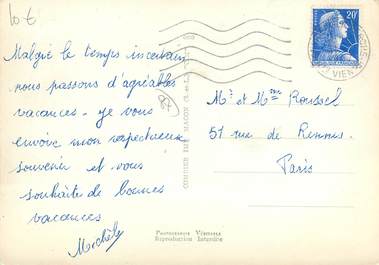 10 €
Malgré le temps incertain
nous passons d'agréables
vacances. Je vous
envoie mon respectueux
souvenir et vous
souhaite de bonnes
vacances
Michèle
COMBIER IMP. MACON (S.-et-L.)
20F
Mr et Mme Roussel
51 rue de Rennes
Paris
Reproduction Interdite